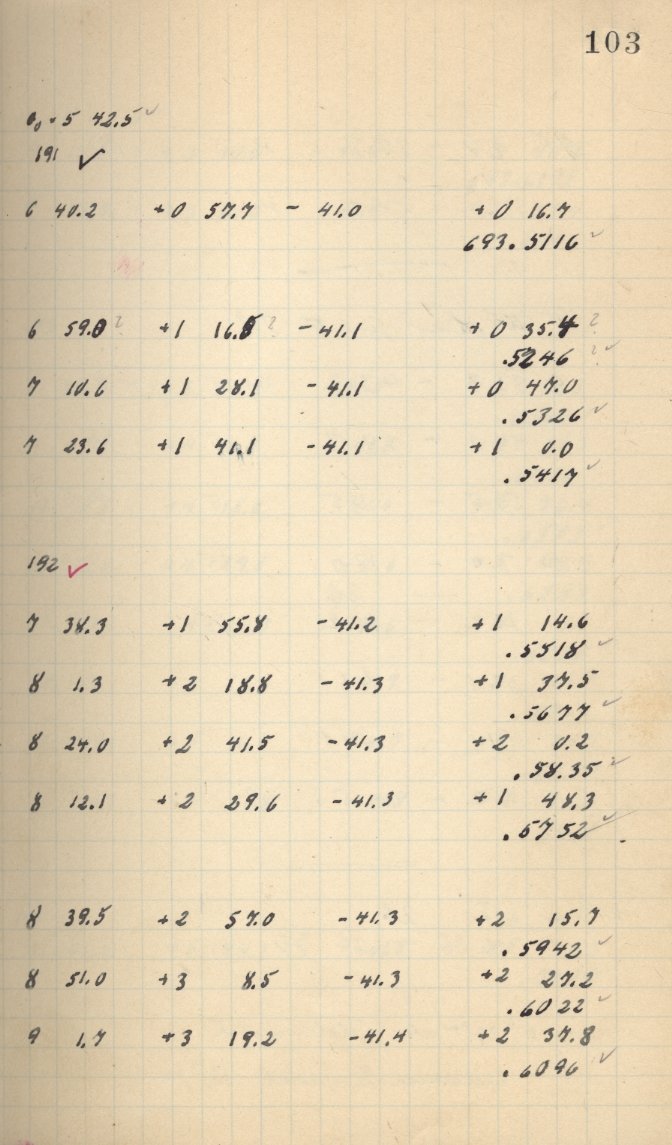 103
θ₀ = 5 42.5 ✓
191 ✓
6 40.2 +0 57.7 - 41.0 +0 16.7
693.5116 ✓
6 59.0 ? +1 16.5 ? - 41.1 +0 35.4 ?
.5246 ? ✓
7 10.6 +1 28.1 - 41.1 +0 47.0
.5326 ✓
7 23.6 +1 41.1 - 41.1 +1 0.0
.5417 ✓
192 ✓
7 38.3 +1 55.8 - 41.2 +1 14.6
.5518 ✓
8 1.3 +2 18.8 - 41.3 +1 37.5
.5677 ✓
8 24.0 +2 41.5 - 41.3 +2 0.2
.58.35 ✓
8 12.1 +2 29.6 - 41.3 +1 48.3
.5752 ✓
8 39.5 +2 57.0 - 41.3 +2 15.7
.5942 ✓
8 51.0 +3 8.5 - 41.3 +2 27.2
.6022 ✓
9 1.7 +3 19.2 - 41.4 +2 37.8
.6096 ✓